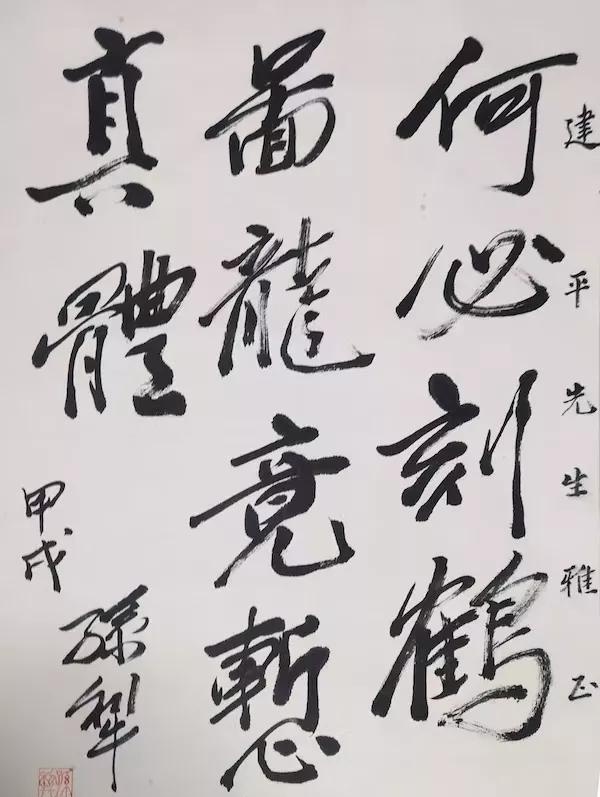 建平先生雅正
何必刻鶴
啚龍竟慙
真體
甲戌
孫犁